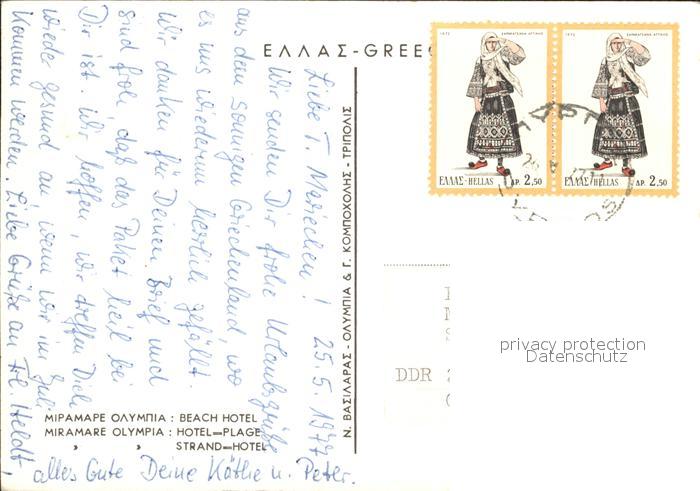 ΕΛΛΑΣ-GREE
Liebe T. Mariechen! 25.5.1977
Wir senden Dir frohe Urlaubsgrüße
aus dem sonnigen Griechenland, wo
es uns wiederum herrlich gefällt.
Wir danken für Deinen Brief und
sind froh daß das Paket heil bei
Dir ist. Wir hoffen, wir treffen Dich
wieder gesund an wenn wir im Juli
kommen werden. Liebe Grüße an Fr. Heldt,
alles Gute Deine Käthe u. Peter.
ΜΙΡΑΜΑΡΕ ΟΛΥΜΠΙΑ : BEACH HOTEL
MIRAMARE OLYMPIA : HOTEL=PLAGE
» » STRAND=HOTEL
Ν. ΒΑΣΙΛΑΡΑΣ - ΟΛΥΜΠΙΑ & Γ. ΚΟΜΠΟΧΟΛΗΣ - ΤΡΙΠΟΛΙΣ
1972
ΕΛΛΑΣ-HELLAS ΔΡ. 2,50
1972
ΕΛΛΑΣ-HELLAS ΔΡ. 2,50
DDR
privacy protection
Datenschutz